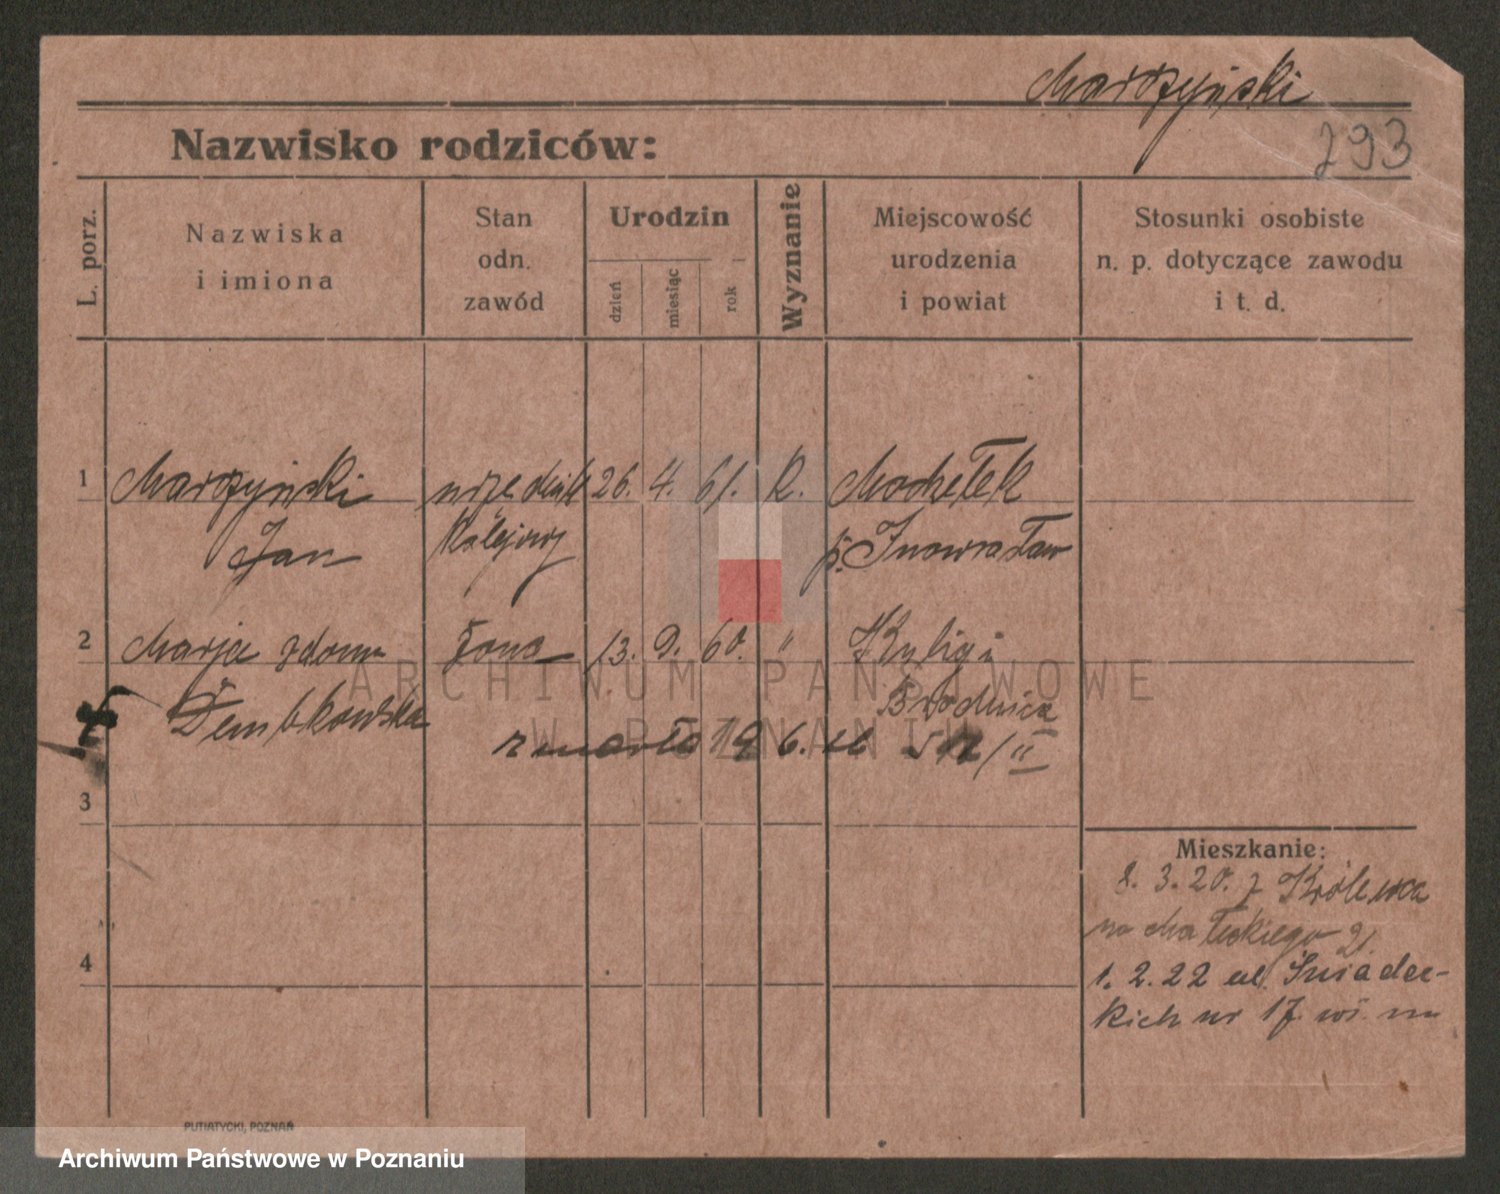 Marszyński
293
Nazwisko rodziców:
L. porz.
Nazwiska
i imiona
Stan
odn.
zawód
Urodzin
dzień
miesiąc
rok
Wyznanie
Miejscowość
urodzenia
i powiat
Stosunki osobiste
n. p. dotyczące zawodu
i t. d.
1 26. 4. 61. K.
Jan kolejowy p. Inowrocław
2 Marja zdomu żona 13. 9. 60. "
Dembkowska Brodnica
zmarła 19 6. 26
3
4
Mieszkanie:
8. 3. 20. z Królewca
na Małeckiego 21.
1. 2. 22 ul. Śniadec-
kich nr 17.
PUTIATYCKI, POZNAŃ
ARCHIWUM PAŃSTWOWE
W POZNANIU
Archiwum Państwowe w Poznaniu